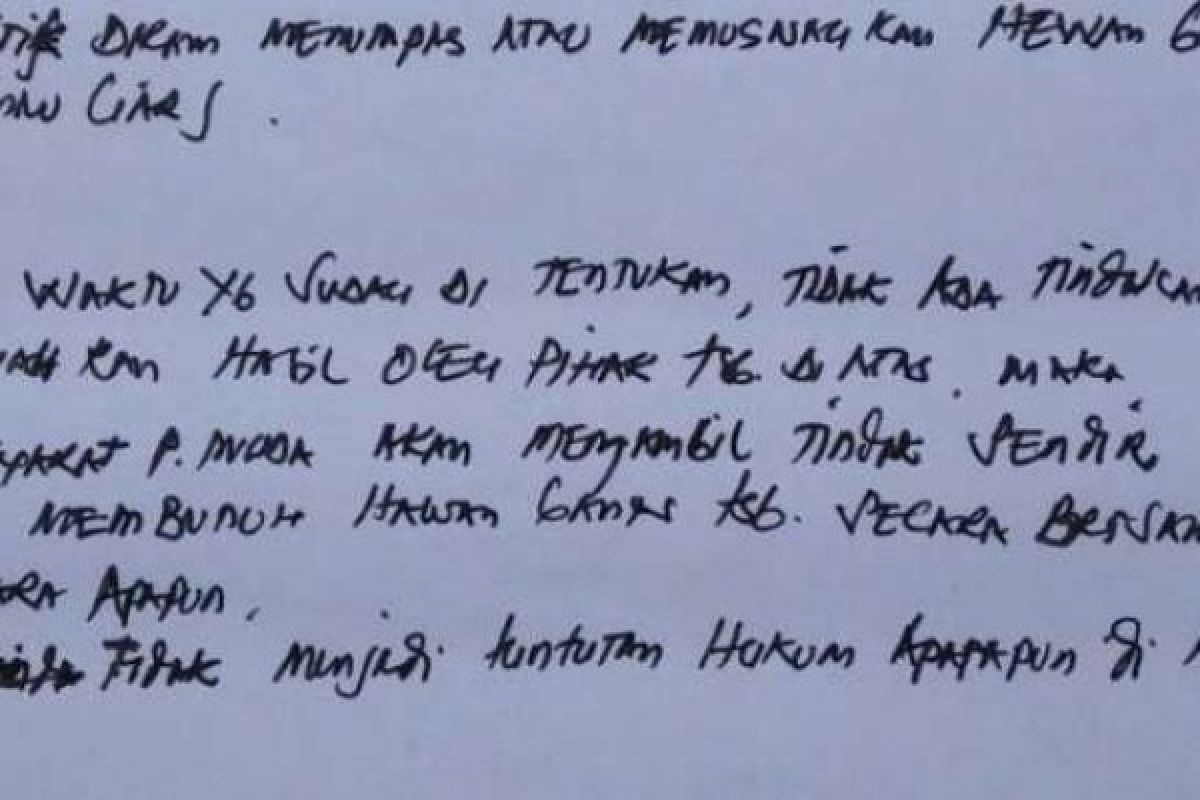 DALAM MENUMPAS ATAU MEMUSNAH KAN HEWAN G
LIAR J .
WAKTU YG SUDAH DI TENTUKAN, TIDAK ADA TINDAKAN
KAN HASIL OLEH PIHAK tsb. DI ATAS. MAKA
APARAT P. MUDA AKAN MENGAMBIL TINDAK SENDIRI
MEMBUNUH HAWAN GANAS tsb. SECARA BERSAMA
APAPUN.
TIDAK Menjadi tuntutan HUKUM APAPAPUN di